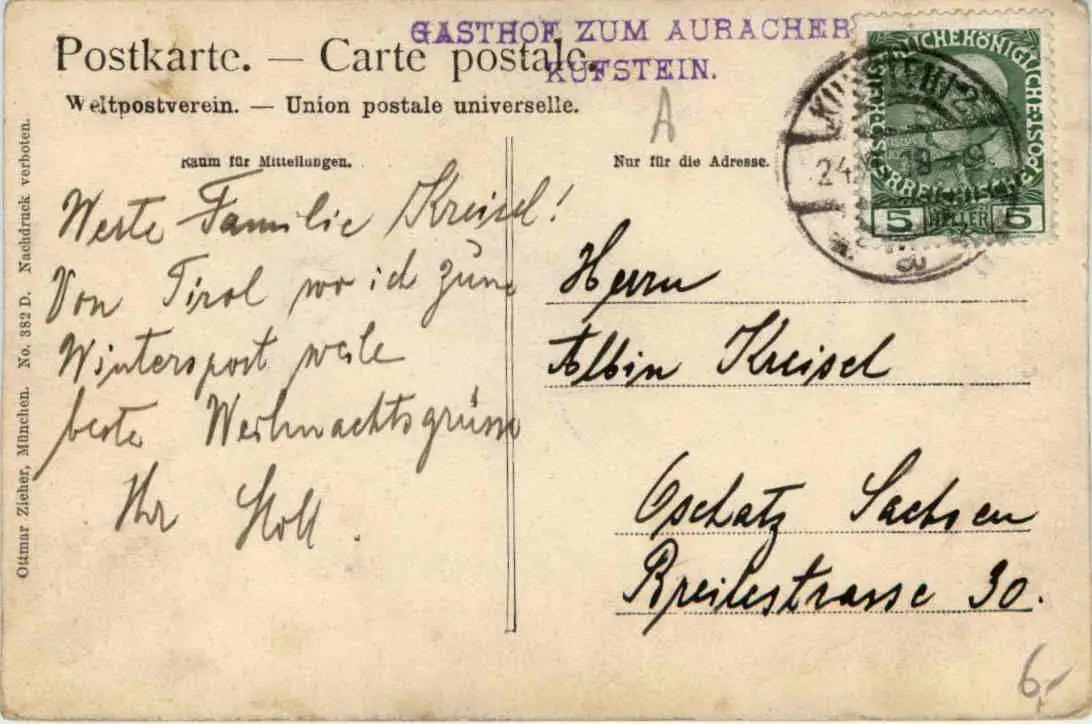 GASTHOF ZUM AURACHER
KUFSTEIN.
Postkarte. — Carte postale.
Weltpostverein. — Union postale universelle.
A
Raum für Mitteilungen.
Nur für die Adresse.
Werte Familie Kreisel!
Von Tirol wo ich zum
Wintersport weile
beste Weihnachtsgrüsse
Ihr Stoll.
Herrn
Albin Kreisel
Oschatz Sachsen
Breitestrasse 30.
Ottmar Zieher, München. No. 382 D. Nachdruck verboten.
KUFSTEIN 2
24
5 HELLER 5
6,-